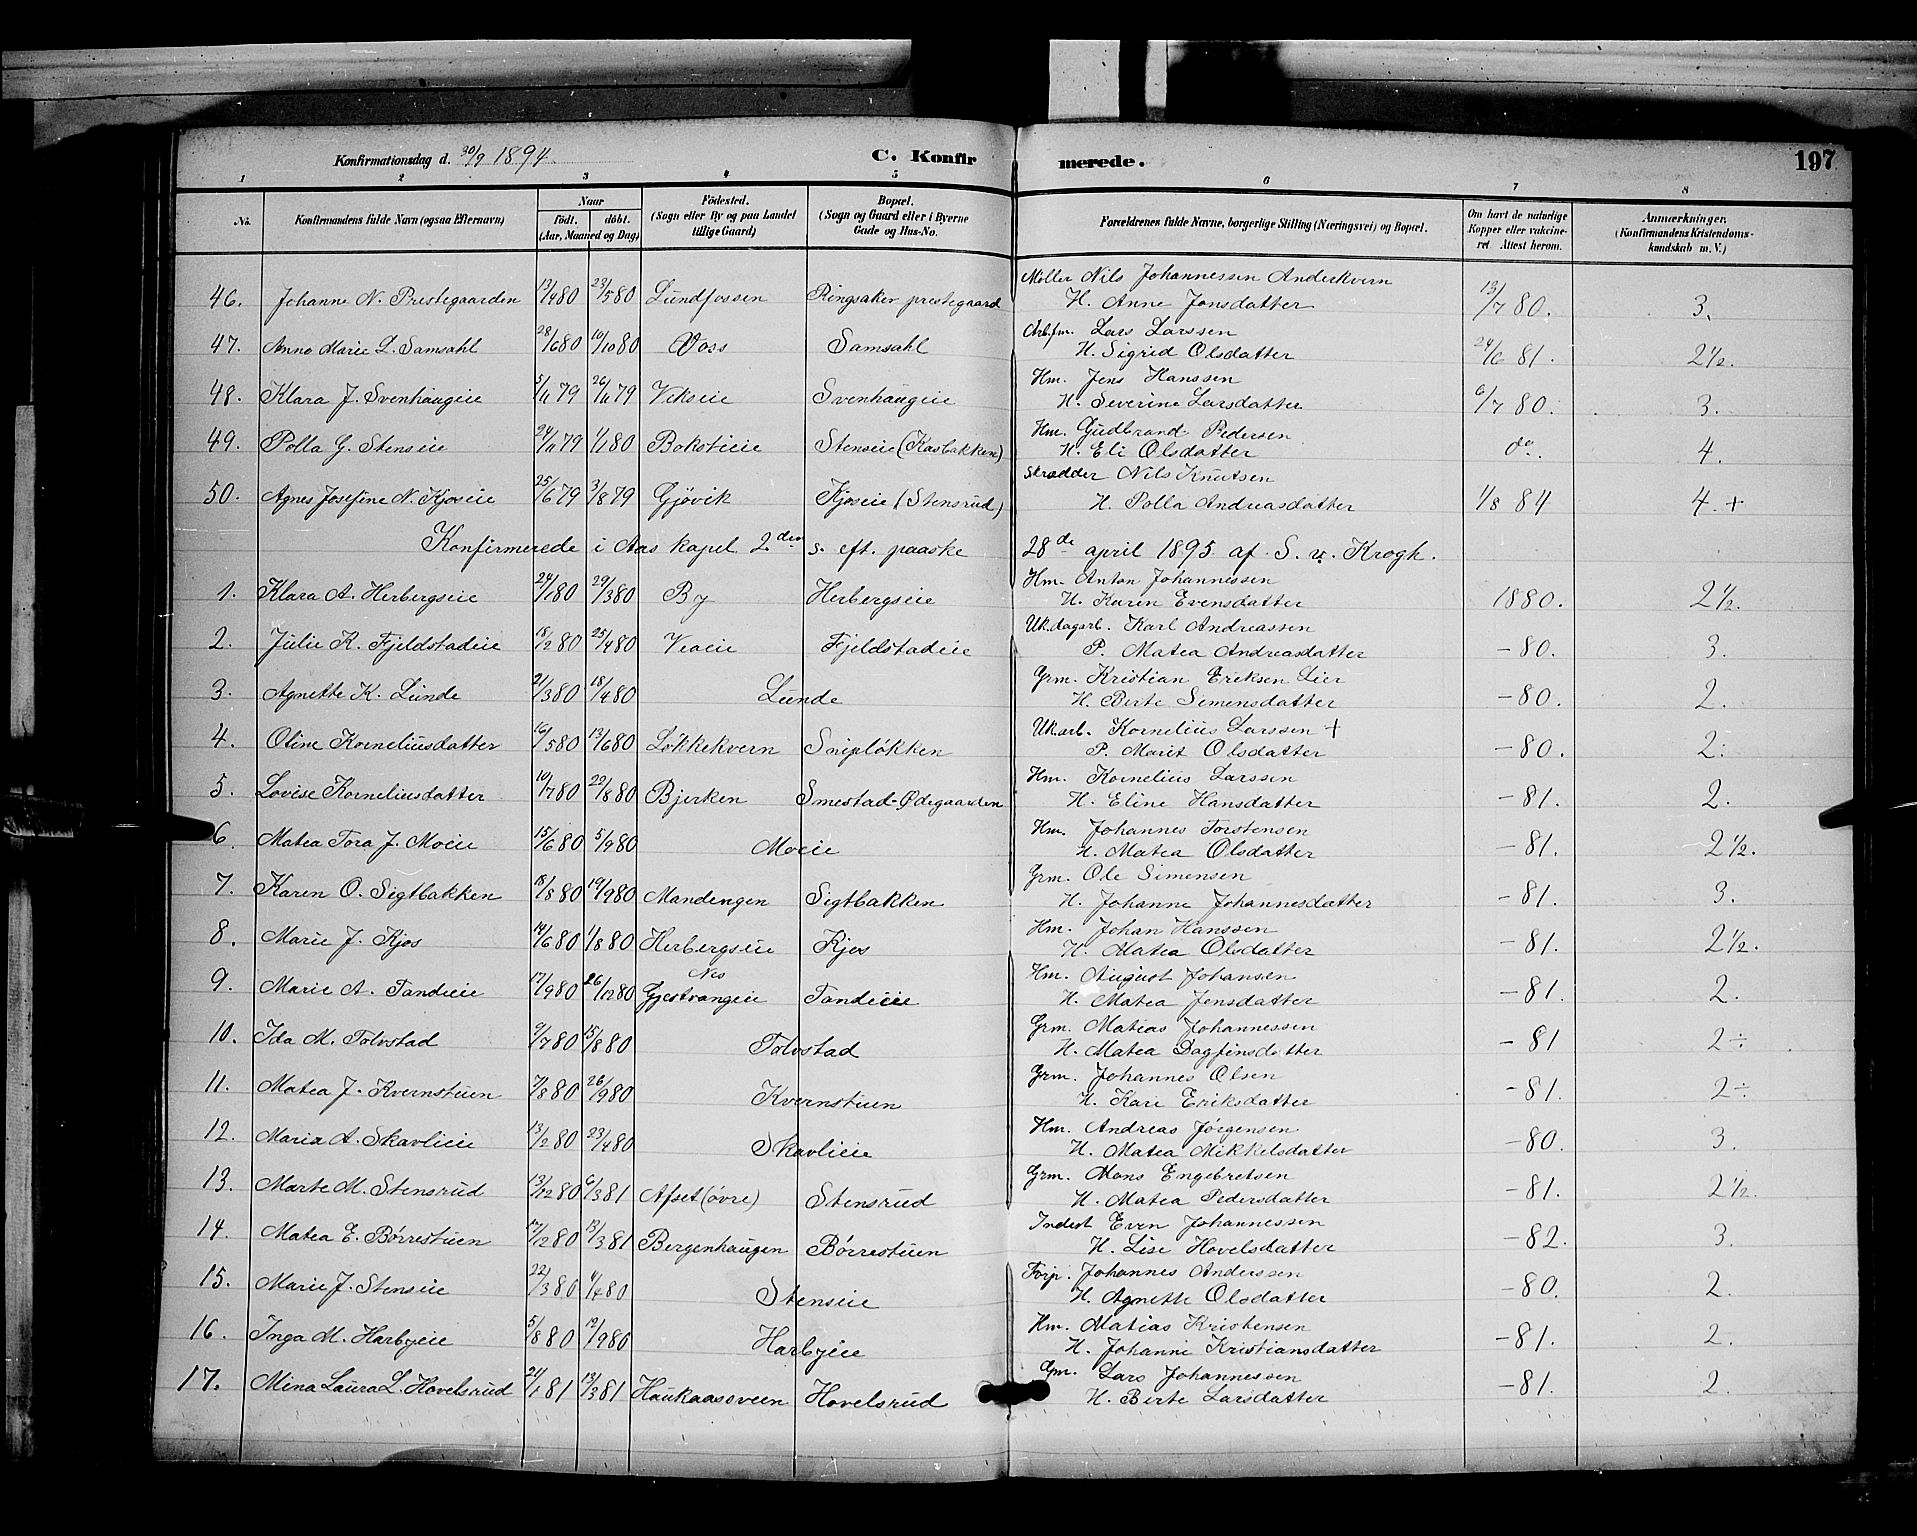 Konfirmationsdag d. 30/9 1894. C. Konfirmerede. 197
1 2 3 4 5 6 7 8
No. Konfirmandens fulde Navn (ogsaa Efternavn) Naar født. døbt. (Aar, Maaned og Dag) Fødested. (Sogn eller By og paa Landet tillige Gaard) Bopæl. (Sogn og Gaard eller i Byerne Gade og Hus-No. Forældrenes fulde Navne, borgerlige Stilling (Næringsvei) og Bopæl. Om havt de naturlige Kopper eller vakcineret. Attest herom. Anmærkninger. (Konfirmandens Kristendomskundskab m. V.)
46. Johanne N. Prestegaarden 13/4 80 23/5 80 Lundfossen Ringsaker prestegaard Møller Nils Johannessen Anderkvern
H. Anne Jonsdatter 13/7 80. 3.
47. Anne Marie L. Samsahl 28/6 80 10/10 80 Voss Samsahl Arb.fm. Lars Larssen
H. Sigrid Olsdatter 24/6 81. 2½.
48. Klara J. Svenhaugeie 5/11 79 26/11 79 Vikseie Svenhaugeie Hm. Jens Hanssen
H. Severine Larsdatter 6/7 80. 3.
49. Polla G. Stenseie 24/11 79 1/1 80 Bokstieie Stenseie (Kasbakken) Hm. Gudbrand Pedersen
H. Eli Olsdatter do. 4.
50. Agnes Josefine N. Kjoseie 25/6 79 3/8 79 Gjøvik Kjoseie (Stensrud) Skrædder Nils Knutsen
H. Polla Andreasdatter 1/8 84 4. +
Konfirmerede i Aas kapel 2den s. eft. paaske 28de april 1895 af S. v. Krogh.
1. Klara A. Herbergseie 24/1 80 29/3 80 By Herbergseie Hm. Anton Johannessen
H. Karen Evensdatter 1880. 2½.
2. Julie K. Fjeldstadeie 18/2 80 25/4 80 Veaeie Fjeldstadeie Uk.dagarb. Karl Andreassen
P. Matea Andreasdatter - 80. 3.
3. Agnette K. Lunde 21/3 80 18/4 80 Lunde Grm. Kristian Eriksen Lier
H. Berte Simensdatter - 80. 2.
4. Oline Korneliusdatter 16/5 80 13/6 80 Løkkekvern Snipløkken Uk.arb. Kornelius Larssen +
P. Marit Olsdatter - 80. 2.
5. Lovise Korneliusdatter 10/7 80 22/8 80 Bjerken Smestad-Ødegaarden Hm. Kornelius Larssen
H. Eline Hansdatter - 81. 2.
6. Matea Tora J. Moeie 15/6 80 5/9 80 Moeie Hm. Johannes Torstensen
H. Matea Olsdatter - 81. 2½.
7. Karen O. Sigtbakken 18/8 80 19/9 80 Mandengen Sigtbakken Grm. Ole Simensen
H. Johanne Johannesdatter - 81. 3.
8. Marie J. Kjos 14/6 80 1/8 80 Herbergseie Kjos Hm. Johan Hanssen
H. Matea Olsdatter - 81. 2½.
9. Marie A. Tandeeie 17/9 80 26/12 80 Nes Gjestvangeie Tandeeie Hm. August Johansen
H. Matea Jensdatter - 81. 2.
10. Ida M. Tolvstad 9/7 80 15/8 80 Tolvstad Grm. Matias Johannessen
H. Matea Dagfinsdatter - 81 2÷
11. Matea J. Kvernstuen 7/8 80 26/9 80 Kvernstuen Grm. Johannes Olsen
H. Kari Eriksdatter - 81. 2÷
12. Maria A. Skavlieie 13/2 80 23/4 80 Skavlieie Hm. Andreas Jørgensen
H. Matea Mikkelsdatter - 80. 3.
13. Marte M. Stensrud 13/12 80 6/3 81 Afset (øvre) Stensrud Grm. Mons Engebretsen
H. Matea Pedersdatter - 81. 2½.
14. Matea E. Børrestuen 17/12 80 13/3 81 Bergenhaugen Børrestuen Inderst Even Johannessen
H. Lise Hovelsdatter - 82. 3.
15. Marie J. Stenseie 22/3 80 4/4 80 Stenseie Forp. Johannes Anderssen
H. Agnette Olsdatter - 80. 2.
16. Inga M. Harbyeie 5/8 80 12/9 80 Harbyeie Hm. Matias Kristensen
H. Johanne Kristiansdatter - 81. 2.
17. Mina Laura L. Hovelsrud 24/1 81 13/3 81 Haukaassveen Hovelsrud Grm. Lars Johannessen
H. Berte Larsdatter - 81. 2.